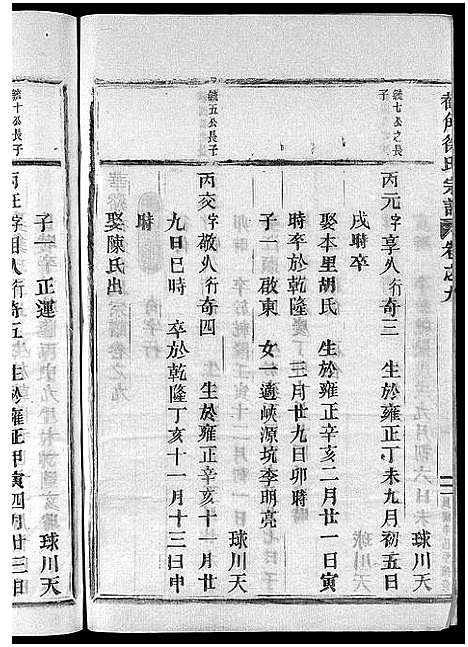 徐氏宗譜 卷之九
鏡十公之長
子
丙元字享人行奇三 生於雍正丁未九月初五日
球川天
戌時卒
娶本里胡氏 生於雍正辛亥二月廿一日寅
時卒於乾隆 三月廿九日卯時
子一啟東 女一適峽源坑李明亮
鏡五公長子
丙交字敬人行奇四 生於雍正辛亥十一月十
球川天
九日巳時 卒於乾隆丁亥十一月十三日申
時
娶陳氏出
子一正運
球川天
鏡十公長子
丙在字相人行奇五 生於雍正甲寅四月廿三日